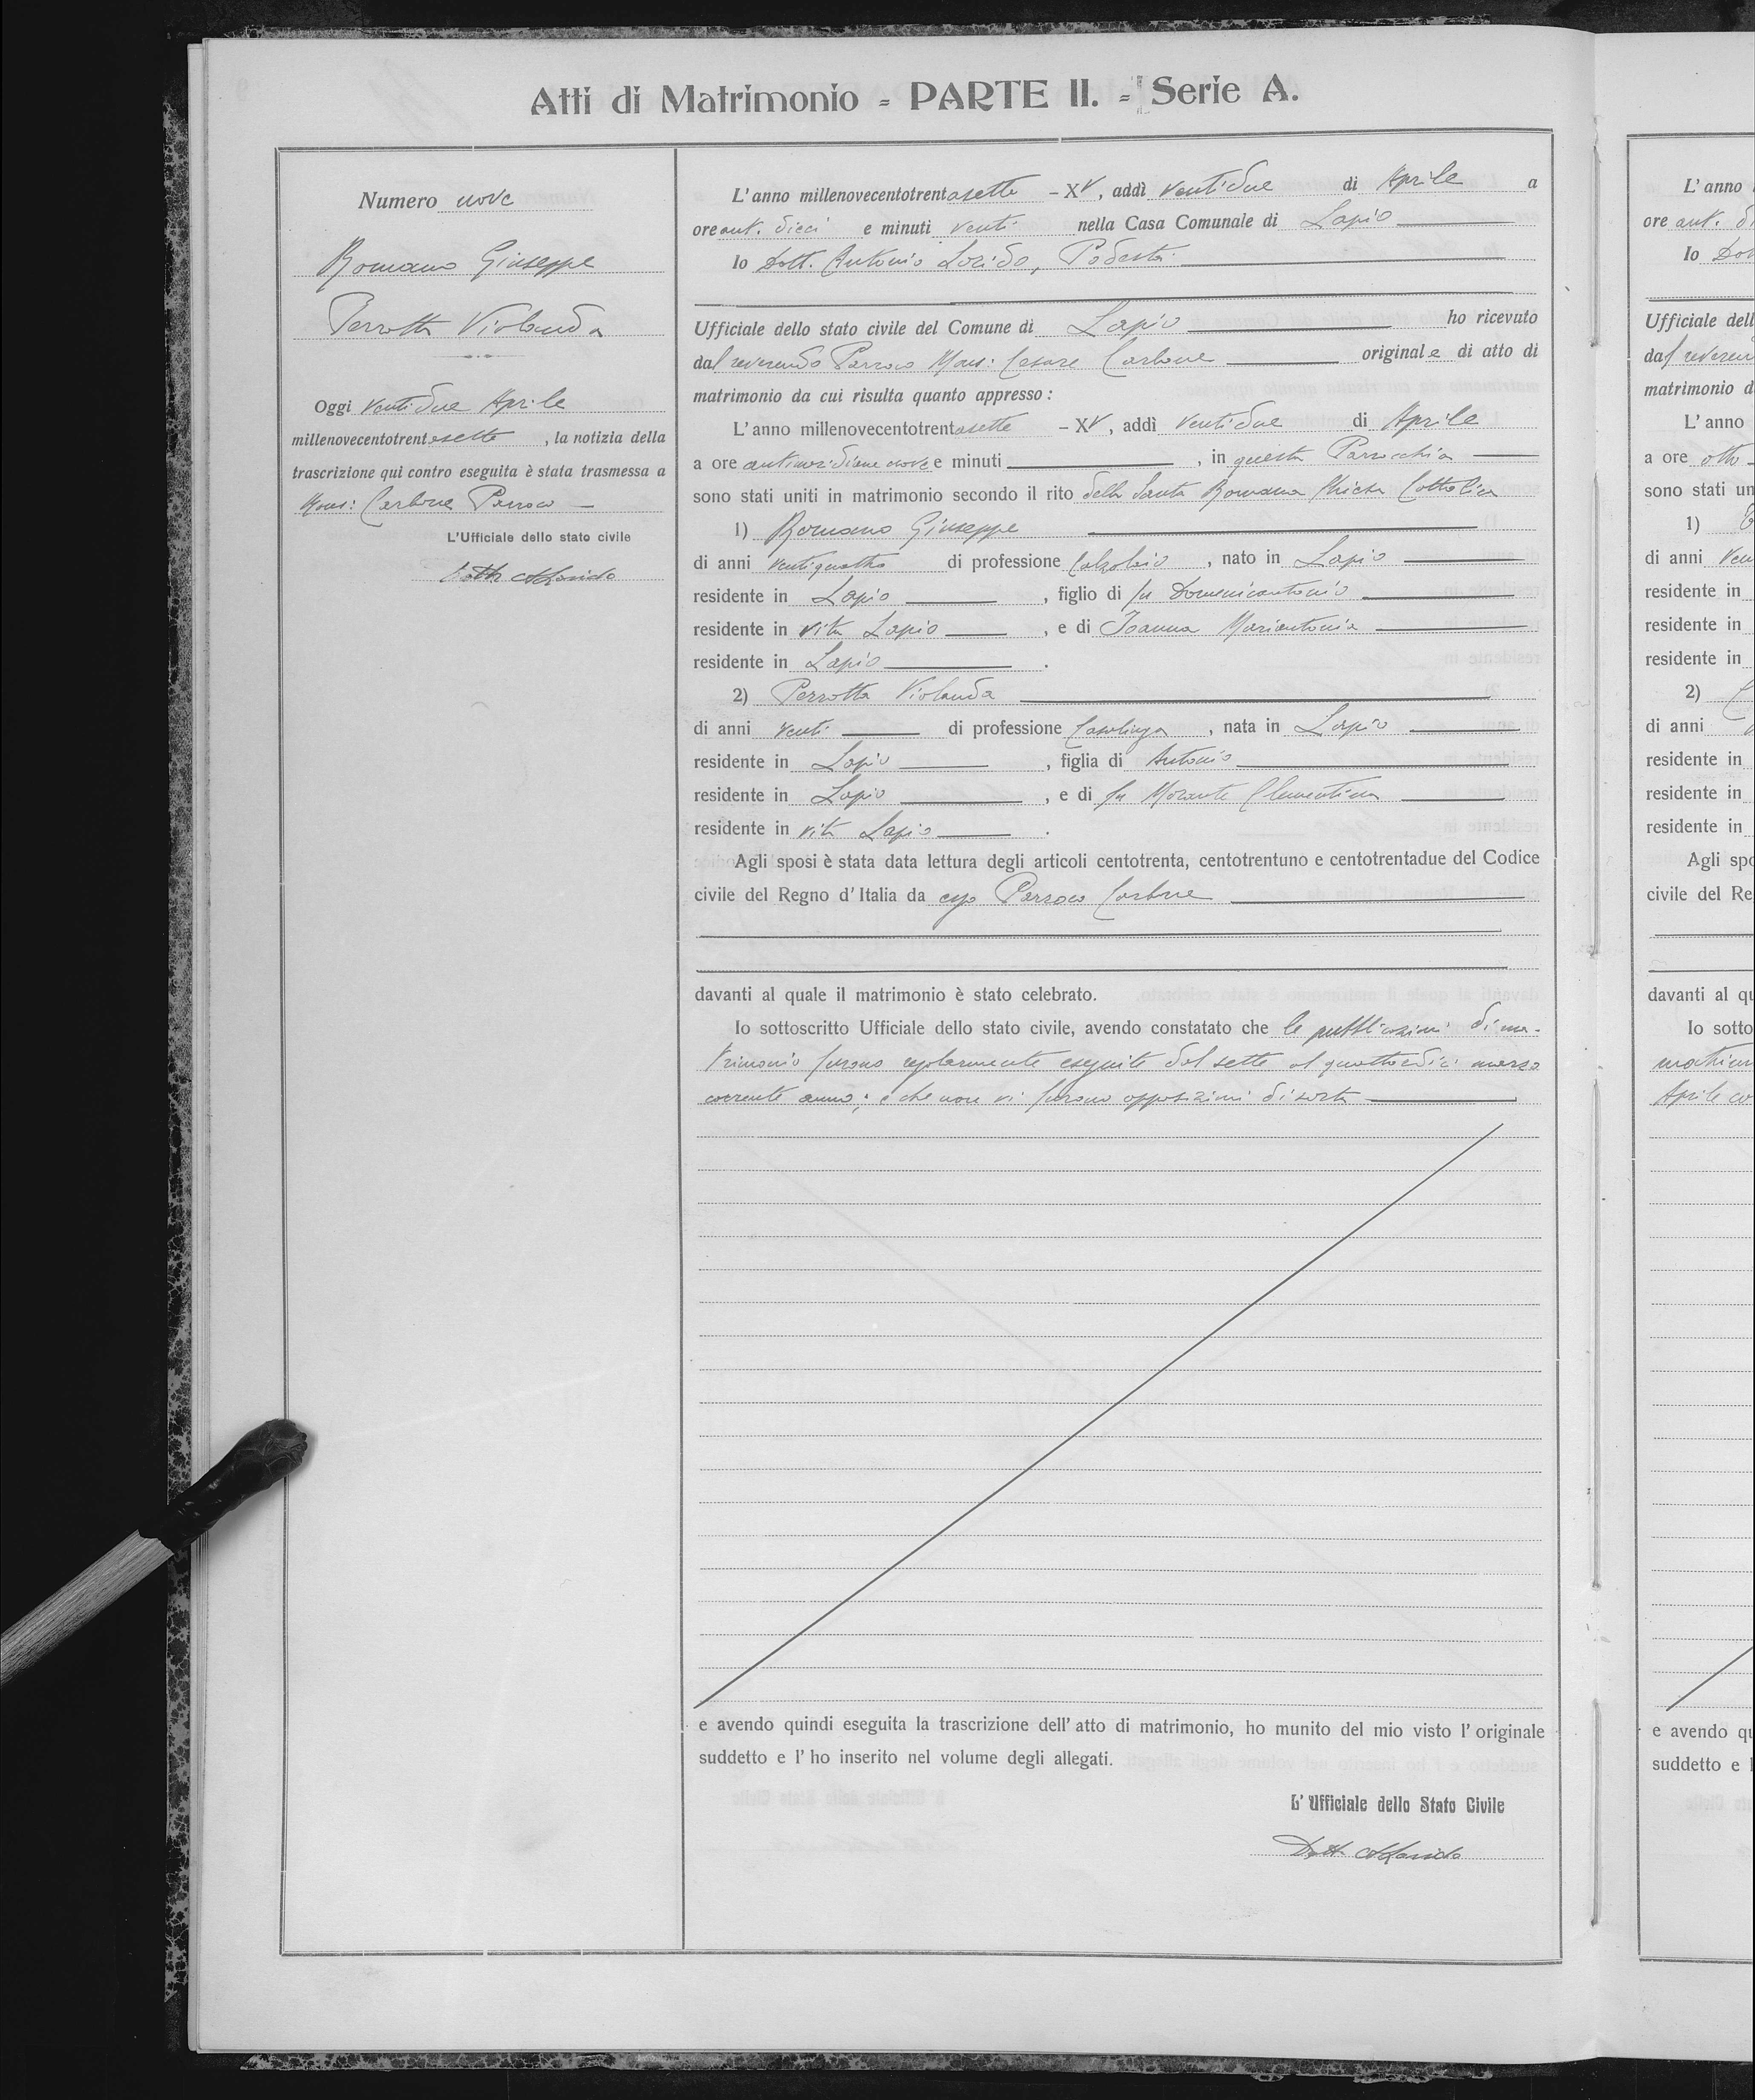 Atti di Matrimonio = PARTE II. = Serie A.
Numero nove
Romano Giuseppe
Perrotta Violanda
Oggi ventidue Aprile
millenovecentotrentasette , la notizia della
trascrizione qui contro eseguita è stata trasmessa a
Mons: Carbone Parroco
L'Ufficiale dello stato civile
Dott.
L'anno millenovecentotrentasette – XV, addì ventidue di Aprile a
ore ant. dieci e minuti venti nella Casa Comunale di Lapio
Io Dott. Antonio Lorido, Podestà
Ufficiale dello stato civile del Comune di Lapio ho ricevuto
dal reverendo Parroco Mons: Cesare Carbone originale di atto di
matrimonio da cui risulta quanto appresso :
L'anno millenovecentotrentasette – XV, addì ventidue di Aprile
a ore antimeridiane nove e minuti , in questa Parrocchia
sono stati uniti in matrimonio secondo il rito della Santa Romana Chiesa Cattolica
1) Romano Giuseppe
di anni ventiquattro di professione Calzolaio , nato in Lapio
residente in Lapio , figlio di fu Domenicantonio
residente in vita Lapio , e di Ioanna Mariantonia
residente in Lapio .
2) Perrotta Violanda
di anni venti di professione Casalinga , nata in Lapio
residente in Lapio , figlia di Antonio
residente in Lapio , e di fu Morante Clementina
residente in vita Lapio .
Agli sposi è stata data lettura degli articoli centotrenta, centotrentuno e centotrentadue del Codice
civile del Regno d'Italia da Parroco Carbone
davanti al quale il matrimonio è stato celebrato.
Io sottoscritto Ufficiale dello stato civile, avendo constatato che le pubblicazioni di ma-
trimonio furono regolarmente eseguite dal sette al quattordici marzo
corrente anno; e che non vi furono opposizioni di sorta
e avendo quindi eseguita la trascrizione dell'atto di matrimonio, ho munito del mio visto l'originale
suddetto e l'ho inserito nel volume degli allegati.
L'Ufficiale dello Stato Civile
Dott.
L'anno
ore ant.
Io Dott
Ufficiale dell
dal reveren
matrimonio d
L'anno
a ore otto
sono stati un
1)
di anni ven
residente in
residente in
residente in
2)
di anni
residente in
residente in
residente in
Agli spo
civile del Re
davanti al qu
Io sotto
Aprile co
e avendo qu
suddetto e l